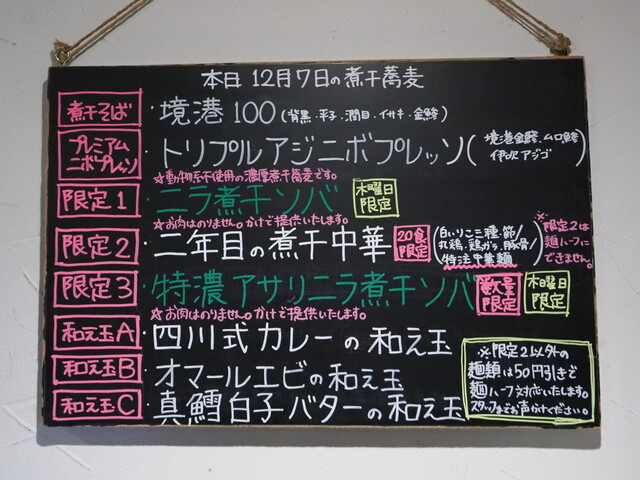 本日 12月7日の煮干蕎麦
煮干そば ・境港100 (背黒・平子・潤目・イサキ・金鯵)
プレミアムニボプレッソ ・トリプルアジニボプレッソ(境港金鯵・ムロ鯵 伊次アジゴ
☆動物系不使用の濃厚煮干蕎麦です。
限定1 ・ニラ煮干ソバ 木曜日限定
☆お肉はのりません。かけで提供いたします。
限定2 ・二年目の煮干中華 20食限定 (白いりこ三種・節/丸鶏・鶏ガラ・豚骨/特注中華麺)
※限定2は麺ハーフにできません。
限定3 ・特濃アサリニラ煮干ソバ 数量限定 木曜日限定
☆お肉はのりません。かけで提供いたします。
和え玉A ・四川式カレーの和え玉
和え玉B ・オマールエビの和え玉
和え玉C ・真鱈白子バターの和え玉
※限定2以外の
麺類は50円引きで
麺ハーフ対応いたします。
スタッフまでお声がけください。